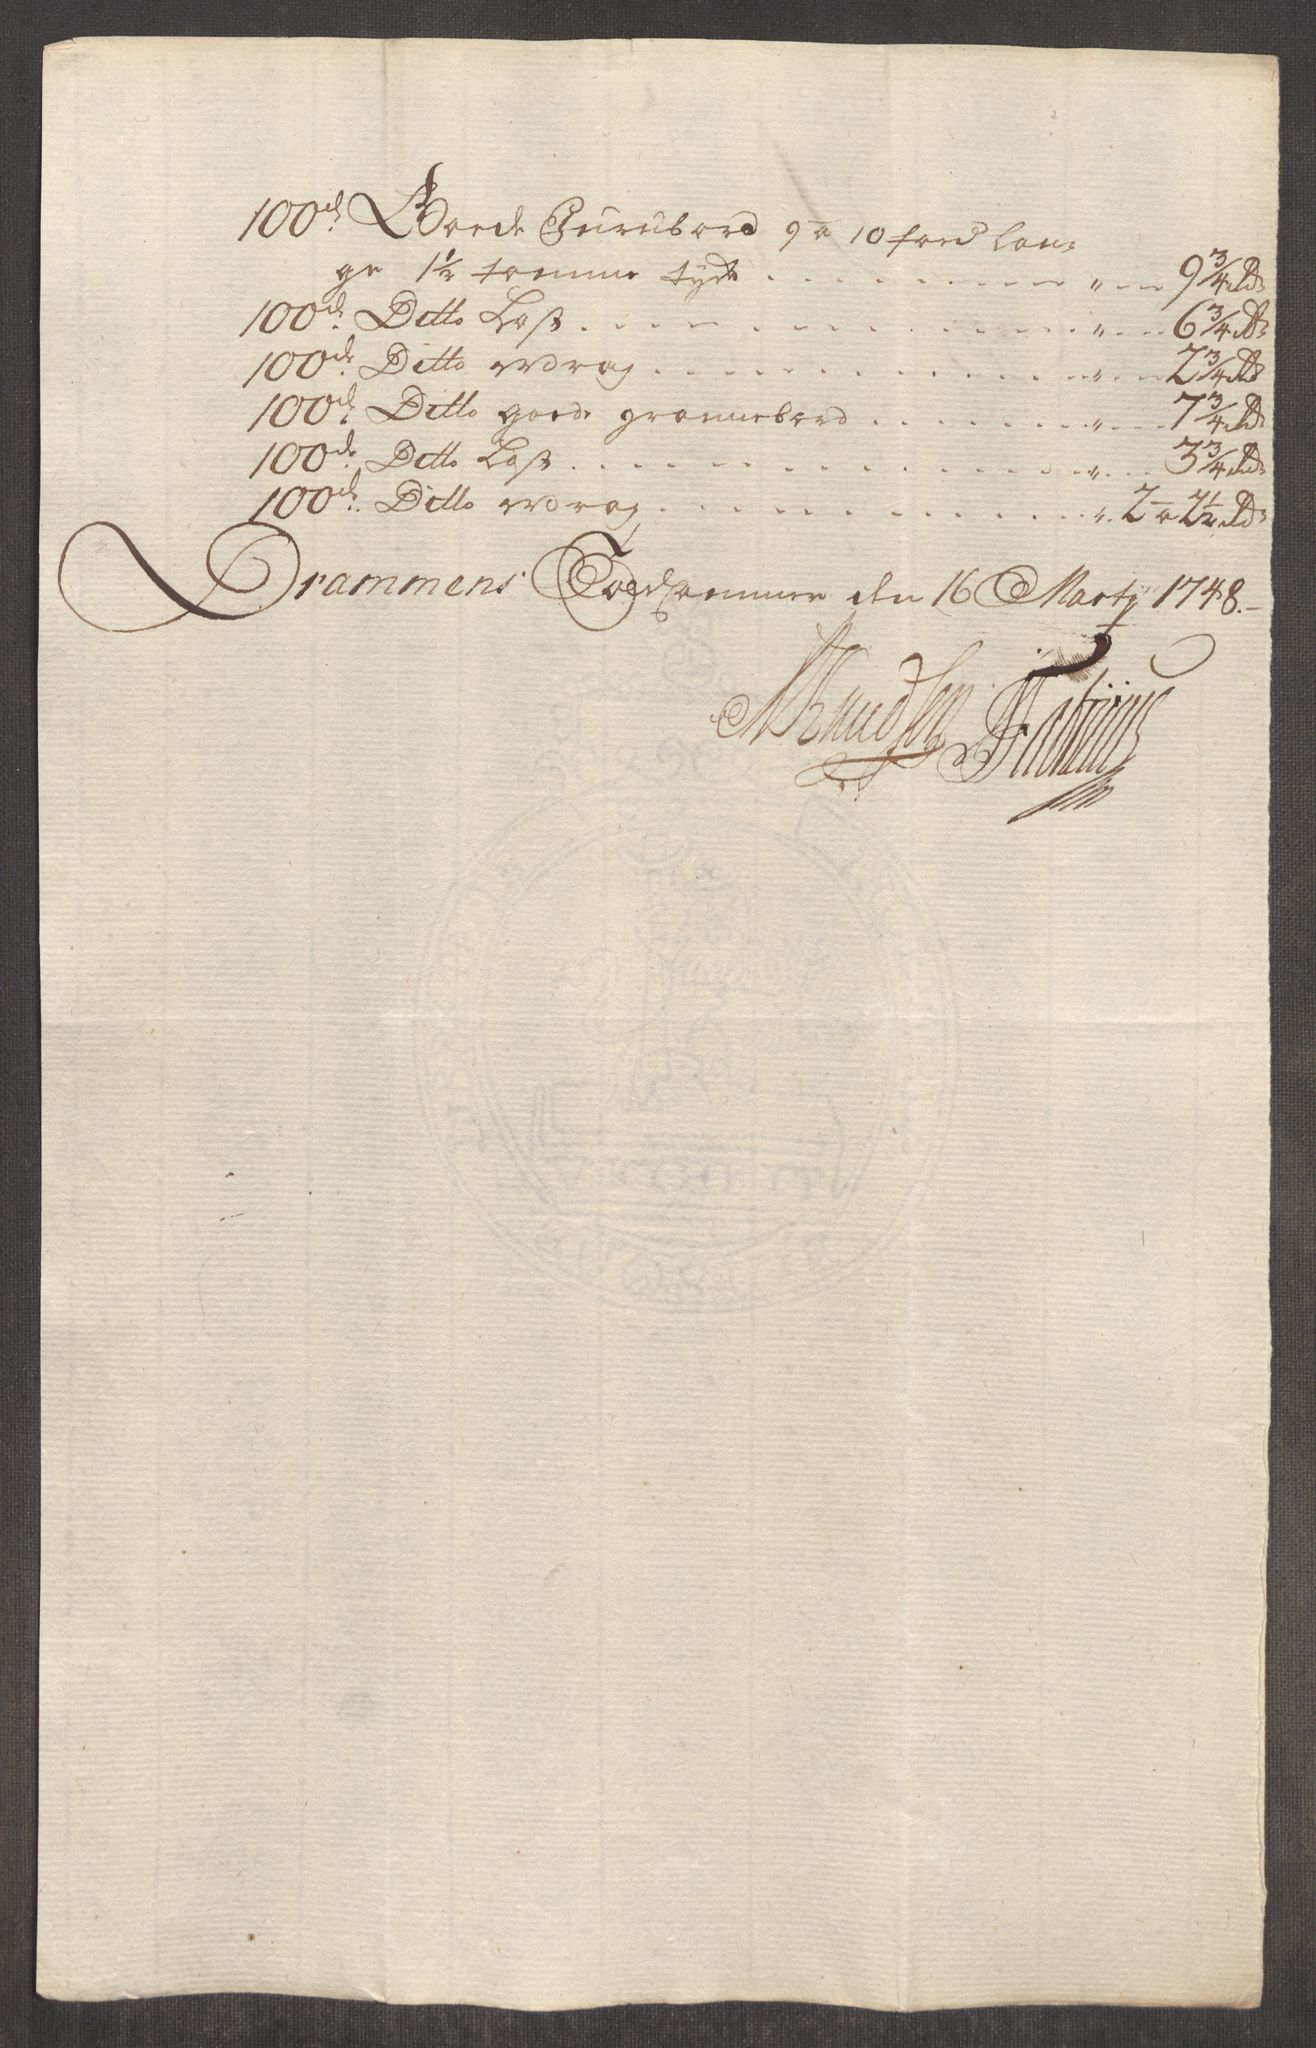 100de Goede Furubord 9 a 10 foed lan,
ge 1½ tomme tyk . . . . . . . . . . " . . 9¾ Rd
100de Ditto Last . . . . . . . . . . " . . 6¾ Rd
100de Ditto wrag . . . . . . . . . . " . . 2¾ Rd
100de Ditto goede grannebord . . . . . . . . " . . 7¾ Rd
100de Ditto Last . . . . . . . . . . " . . 3¾ Rd
100de Ditto wrag . . . . . . . . . . " . 2 a 2½ Rd
Drammens Toldkammer den 16 Martÿ 1748.
Knudsen